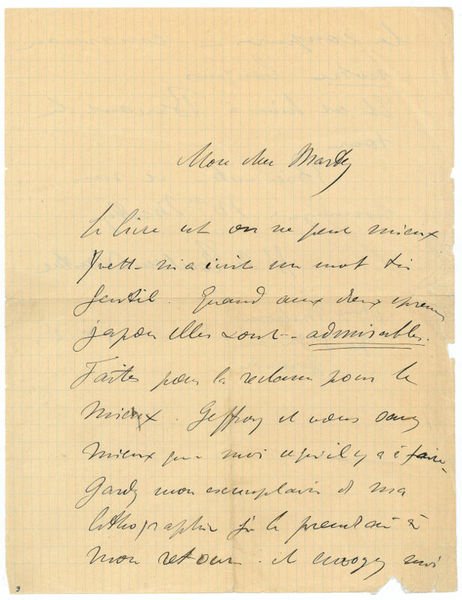 Mon cher Marty
Le livre est on ne peut mieux
Yvette m'a écrit un mot très
gentil. Quand aux deux épreuves
japon elles sont admirables.
Faites pour la reclame pour le
mieux. Geffroy et vous savez
mieux que moi ce qu'il y a à faire
Gardez mon exemplaire et ma
lithographie je le prendrai à
mon retour et envoyez moi